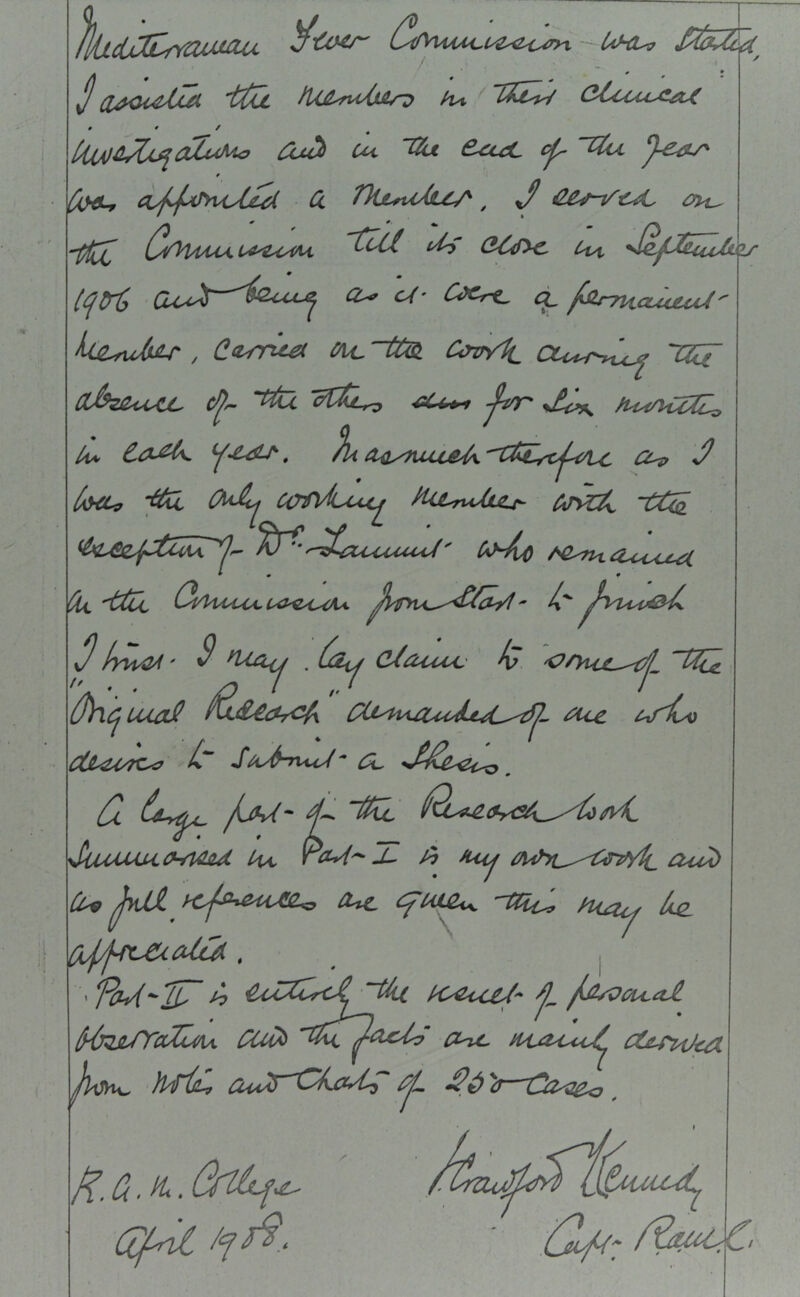 Mediterranean Fever Commission was started,
I assisted the members in their clinical
investigations and in the end of the year
was appointed a member. I served on
the Commission till its close in September
1906 and being as it were a permanent
member, carried on the work during the
absence of the others for six months
in each year. Inasmuch therefore as I
was the only working member with the
exception of Dr. Zammit who remained
on the Commission from start to finish
I trust I may lay claim to some of the
"Original Research" demanded of one who
desires to submit a Thesis.
A large part of the Research work
summarised in Part I is my own work and
as full references are given this may be
appreciated.
Part II is entirely the result of personal
observation and the facts are mainly derived
from notes and charts of 250 cases.
R.A.M. College
April 1908.
J. Crawford Kennedy
Capt. R.A.M.C.